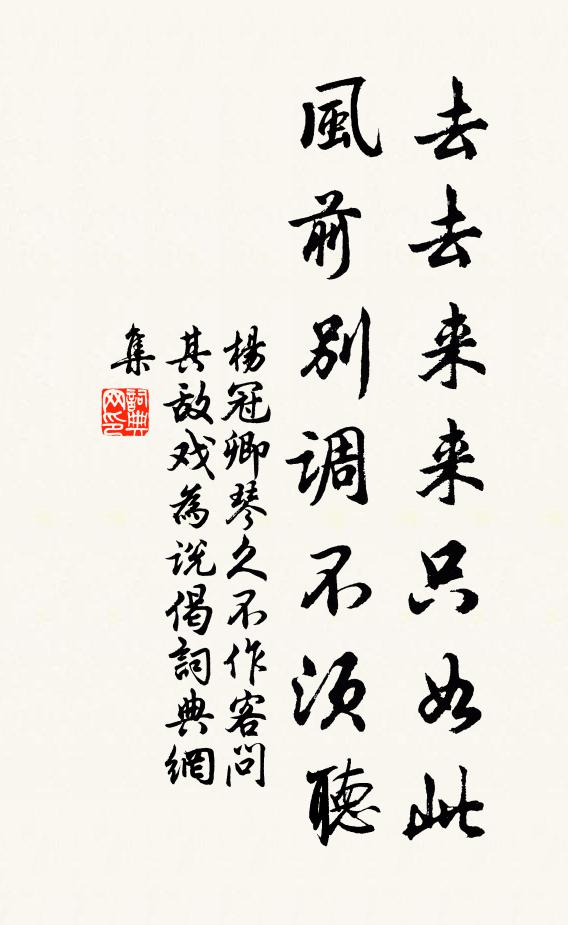 去去来来只如此
風前别调不须聽
楊冠卿琴久不作客問
其故戏為说偈詞典網
集
詞典
网印